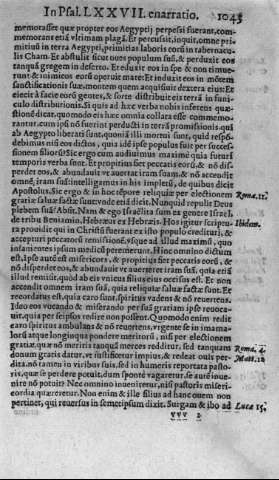 In Psal. LXXVII. enarratio. 1045
memorasset quæ propter eos Aegypti perpessi fuerant, com-
memoraret etiā vltimam plagā. Et percussit, inquit, omne pri-
mitiuū in terra Aegypti, primitias laboris eorū in tabernacu-
lis Cham. Et abstulit sicut oues populum suū, & perduxit eos
tanquā gregem in deserto. Et eduxit eos in spe & non timue-
runt: & inimicos eorū operuit mare. Et induxit eos in mōtem
sanctificationis suæ, montem quem acquisiuit dextera eius: Et
eiecit à facie eorū gentes, & sorte distribuit eis terrā in funi-
culo distributionis. Si quis ad hæc verba nobis inferens
dicat, quomodo eis hæc omnia collata esse commemo-
rantur, cum ipsi nō fuerint perducti in terrā promissionis qui
ab Aegypto liberati sunt, quoniā illi mortui sunt, quid respō-
debimus nisi eos dictos, quia idē ipse populus fuit per succes-
sionem filiorū? Sic ergo cum audiuimus maxime quia futuri
temporis verba sunt. Et propitius fiet peccatis eorū, & nō di-
sperdet eos, & abundauit vt auertat iram suam, & nō accendit
omnē iram suā: intelligamus in his impletū, de quibus dicit
Apostolus, Sic ergo & in hoc tēpore reliquiæ per electionem Roma. 11.
gratiæ saluæ factæ sunt: vnde etiā dicit, Nunquid repulit Deus
plebem suā? Absit. Nam & ego Israelita sum ex genere Israel,
de tribu Beniamin, Hebræus ex Hebræis. Hos igitur scriptu- Ibidem.
ra prouidit qui in Christū fuerant ex isto populo credituri, &
accepturi peccatorū remissionē, vsque ad illud maximū, quo
insanientes ipsum medicū peremerunt. Hinc omnino dictum
est, Ipse autē est misericors, & propitius fiet peccatis eorū, &
nō disperdet eos, & abundauit vt auerteret iram suā, quia etiā
illud remisit, quòd ab eis vnicus filius eius occisus est. Et non
accendit omnem iram suā, quia reliquiæ saluæ factæ sunt. Et
recordatus est, quia caro sunt, spiritus vadens & nō reuertens.
Ideo eos vocando & miserando per suā gratiam ipse reuoca-
uit, quia per seipsos redire non possent. Quomodo enim redit
caro spiritus ambulans & nō reuertens, vrgente se in imama-
lorū atque longinqua pondere meritorū, nisi per electionem
gratiæ, quæ nō meritis tanquā merces redditur, sed tanquam Roma. 4.
donum gratis datur, vt iustificetur impius, & redeat ouis per- Matt. 18
dita, nō tamen in viribus suis, sed in humeris reportata pasto-
ris, quæ se perdere potuit, dum spontè vagaretur, se autē inue-
nire nō potuit? Nec omnino inueniretur, nisi pastoris miseri-
cordia quæreretur. Non enim & ille filius ad hanc ouem non
pertinet, qui reuersus in semetipsum dixit, Surgam & ibo ad Luca 15.
VVV 2